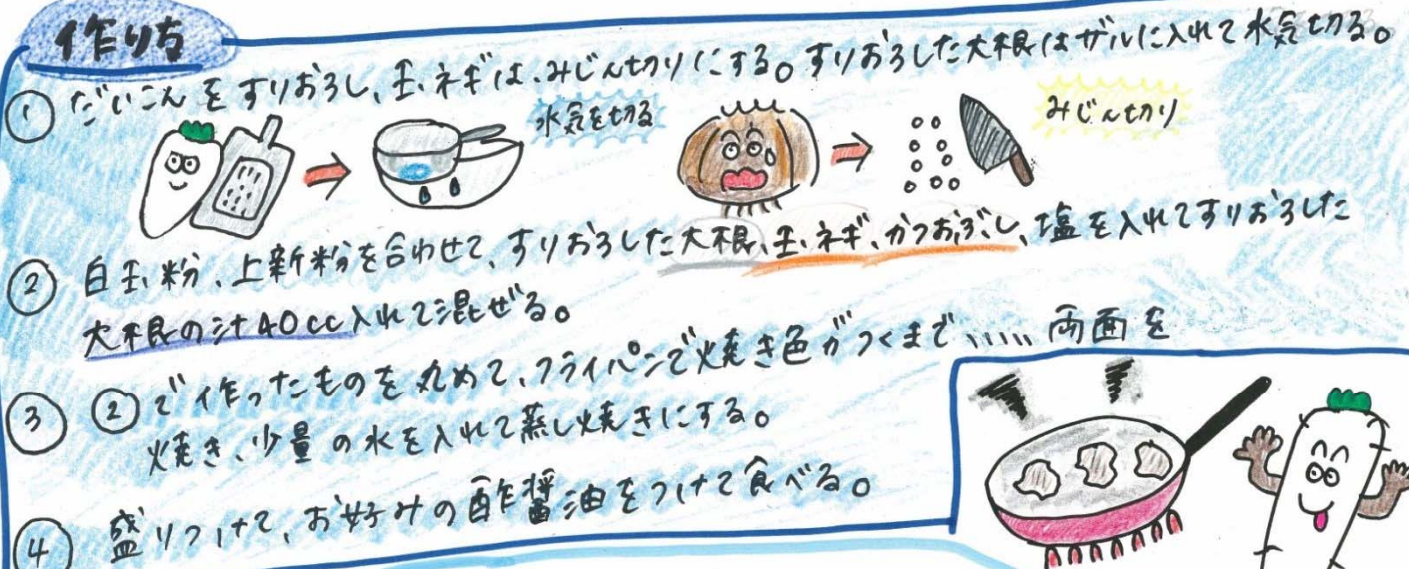 作り方
① だいこんをすりおろし、玉ネギは、みじん切りにする。すりおろした大根はザルに入れて水気切る。
水気を切る
みじん切り
② 白玉粉、上新粉を合わせて、すりおろした大根、玉ネギ、かつおぶし、塩を入れてすりおろした
大根の汁40cc入れて混ぜる。
③ ②で作ったものを丸めて、フライパンで焼き色がつくまで、、、、、両面を
焼き、少量の水を入れて蒸し焼きにする。
④ 盛りつけて、お好みの酢醤油をつけて食べる。